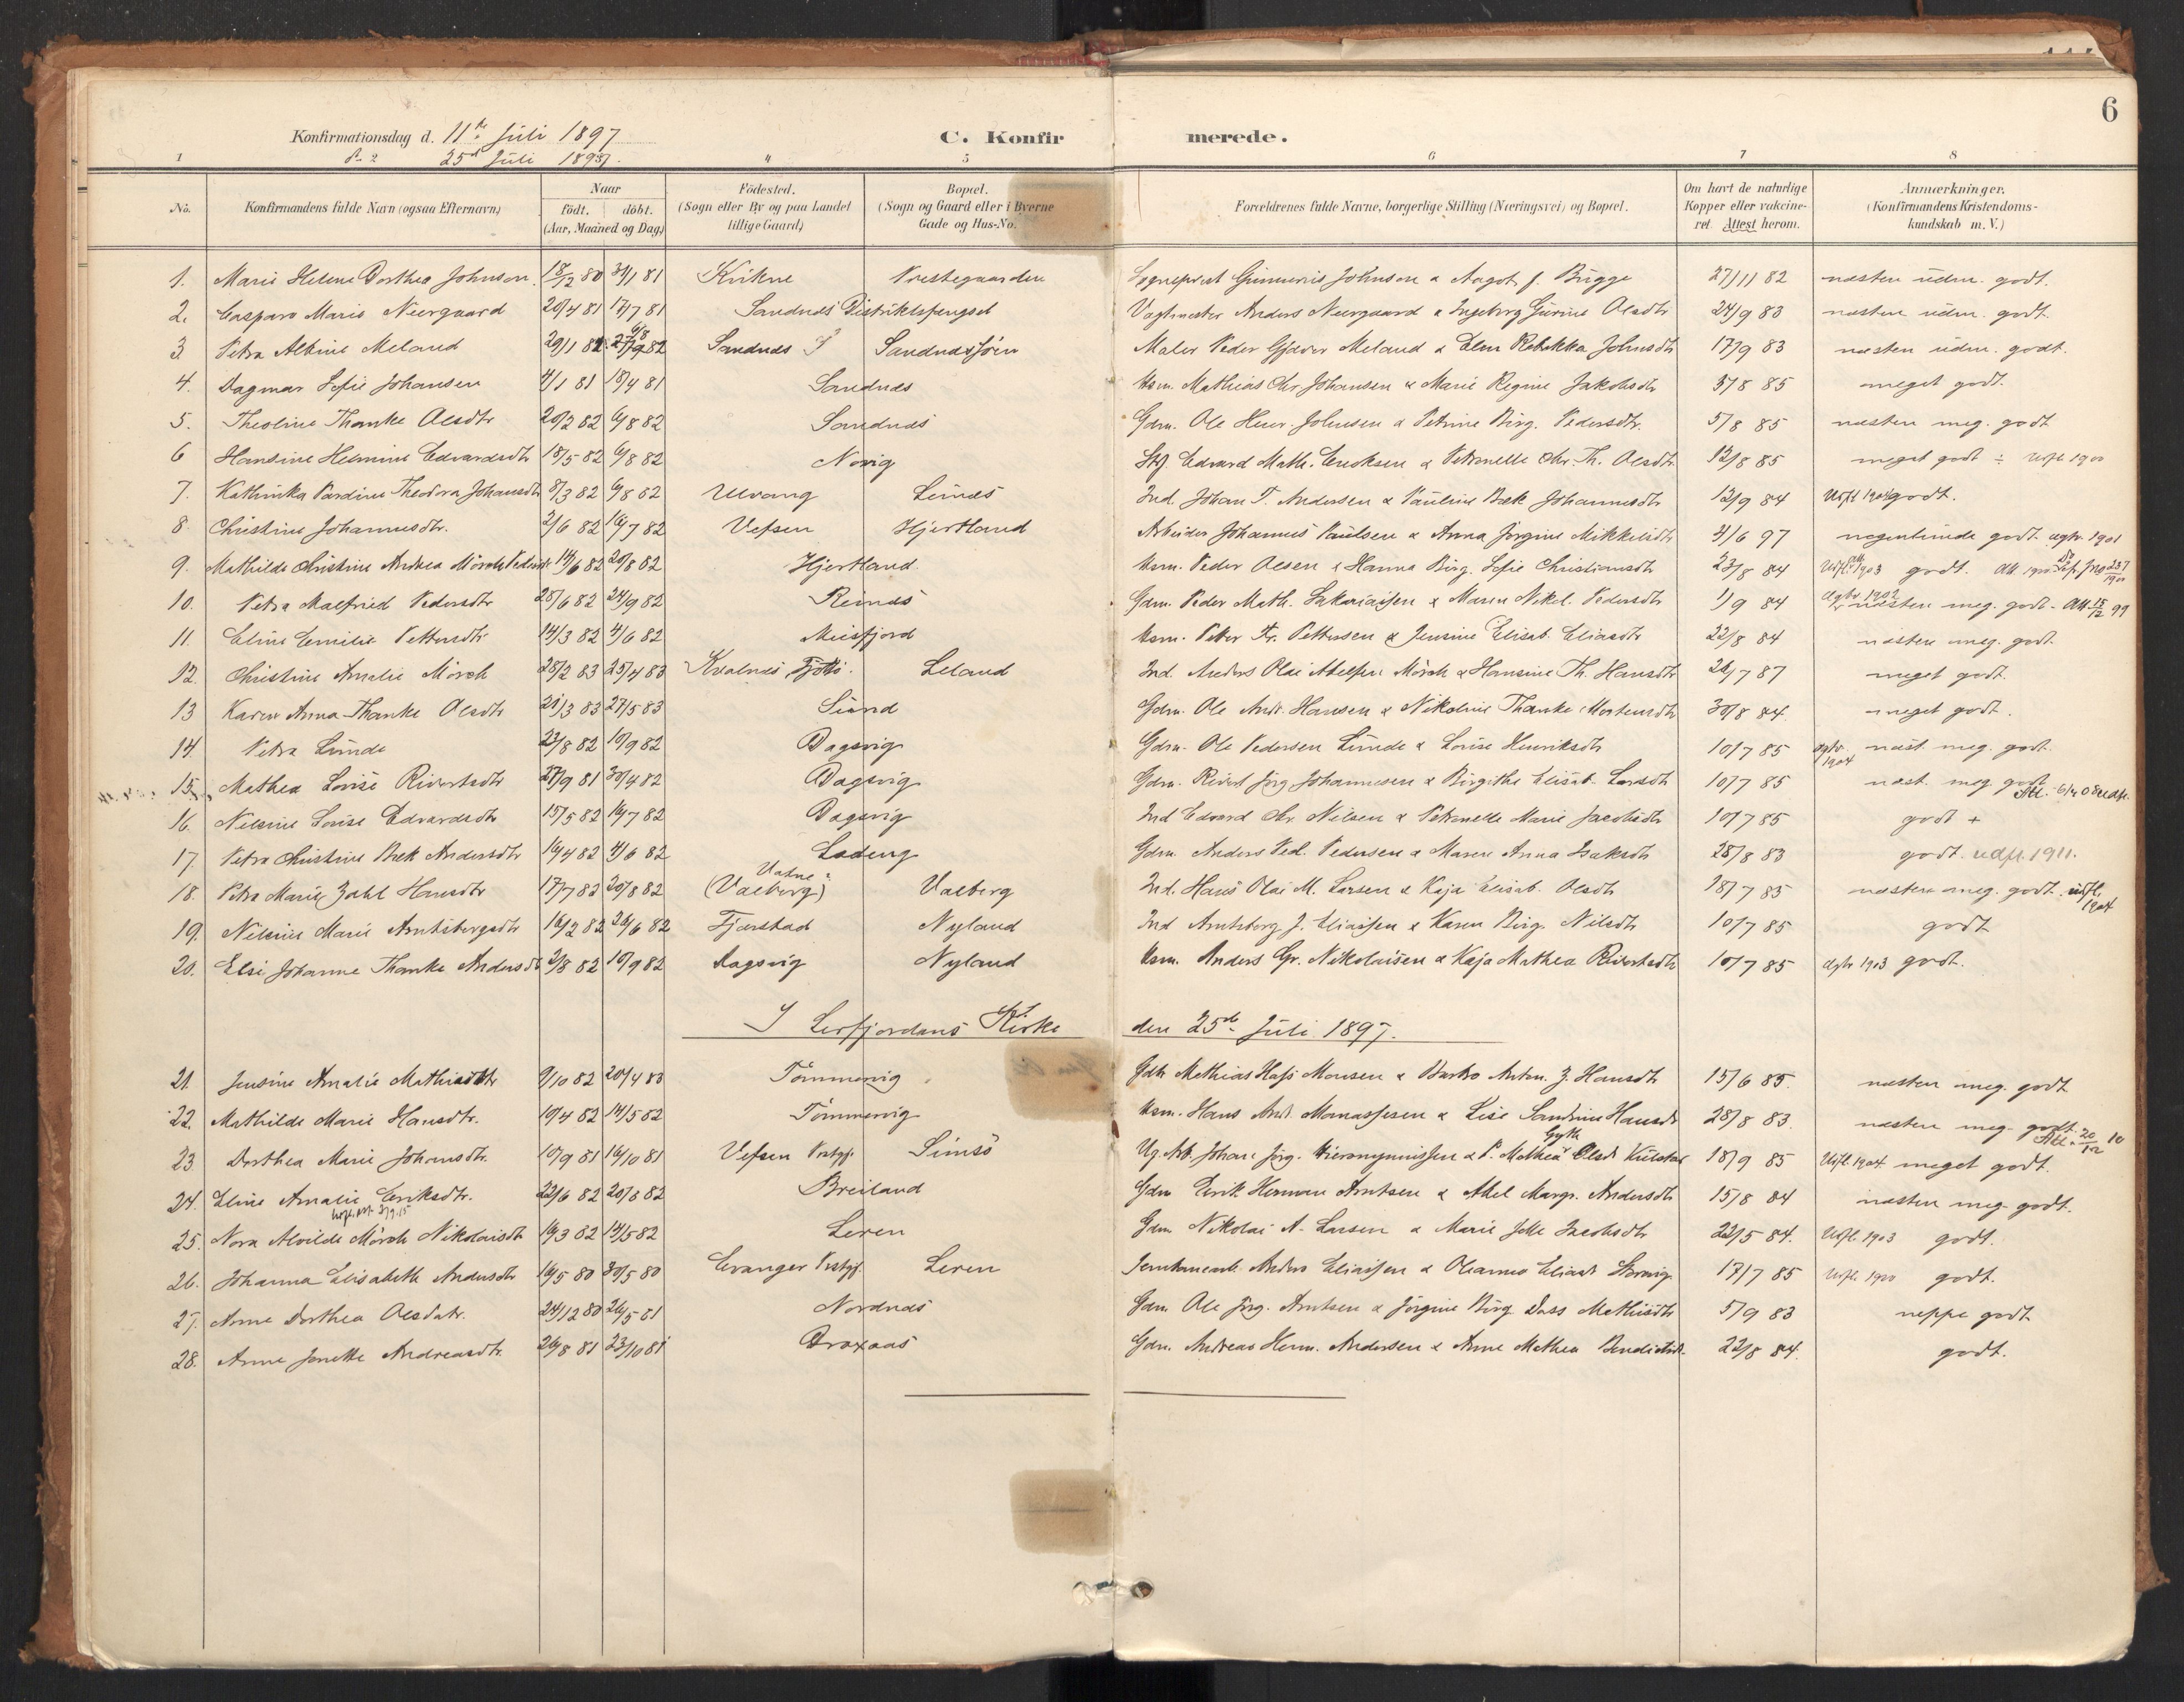 6
Konfirmationsdag d. 11te Juli 1897 C. Konfirmerede.
25d Juli 1897.
1 2 4 5 6 7 8
No. Konfirmandens fulde Navn (ogsaa Efternavn) Naar födt. döbt. (Aar, Maaned og Dag) Födested. (Sogn eller By og paa Landet tillige Gaard) Bopæl. (Sogn og Gaard eller i Byerne Gade og Hus-No. Forældrenes fulde Navne, borgerlige Stilling (Næringsvei) og Bopæl. Om havt de naturlige Kopper eller vakcineret. Attest herom. Anmærkninger. (Konfirmandens Kristendomskundskab m. V.)
1. Marie Helene Dorthea Johnson 18/12 80 31/1 81 Prestegaarden Sogneprest Johnson & Aagot f. Brügge 27/11 82 næsten udm. godt.
2. Caspara Marie Neergaard 20/4 81 17/7 81 Sandnes Distriktsfengsel Vagtmester Anders Neergaard & Ingeborg Gurine Olsdtr 24/9 83 næsten udm. godt.
3. Petra Albine Meland 29/1 82 6/8 82 Sandnes Sandnessjöen Maler Peder Gjæver Meland & Elen Rebekka Johnsdtr 17/9 83 næsten udm. godt.
4. Dagmar Sofie Johansen 4/1 81 18/4 81 Sandnes Husm. Mathias Chr. Johansen & Marie Regine Jakobsdtr 5/8 85 meget godt.
5. Theoline Thanke Olsdtr 20/2 82 6/8 82 Sandnes Gdm. Ole Henr. Johnsen & Petrine Birg. Pedersdtr. 5/8 85 næsten meg. godt
6 Hansine Helmine Edvardsdtr 18/5 82 6/8 82 Novig Edvard Math. Eriksen & Petronelle Chr. Th. Olsdtr. 12/8 85 meget godt ÷ Udfl. 1900
7. Kathinka Pardine Theodora Johansdtr 8/3 82 6/8 82 Ulvang Leines Ind. Johan T. Andersen & Pauline Bæk Johannesdtr 12/9 84 Udfl 1904 godt.
8. Christine Johannesdtr. 2/6 82 16/7 82 Vefsen Hjertland Arbeider Johannes Paulsen & Anna Jörgine Mikkelsdtr 4/6 97 nogenlunde godt. agtr. 1901
9. Mathilde Christine Andrea Mörch Pedersdtr 14/6 82 20/8 82 Hjertland Husm. Peder Olsen & Hanna Birg. Sofie Christiansdtr 23/8 84 Udfl. 1903 godt.
10. Petra Malfried Pedersdtr 28/6 82 24/9 82 Reines Gdm. Peder Math. Sakariassen & Maren Nikol. Pedersdtr 1/9 84 agtr 1902 næsten meg. godt - Att 15/12 99
11. Eline Emilie Pettersdtr 14/3 82 4/6 82 Meisfjord Husm. Peter Fr. Pettersen & Jensine Elisab. Eliasdtr 22/8 84 næsten meg. godt.
12. Christine Amalie Mörch 28/2 83 25/4 83 Kvalnes, Tjötö. Leland Ind. Anders Olai Abelsen Mörch & Hansine Th. Hansdtr 26/7 87 meget godt.
13 Karen Anna Thanke Olsdtr 21/3 83 27/5 83 Sund Gdm. Ole Andr. Hansen & Nikoline Thanke Mortensdtr 30/8 84. meget godt.
14. Petra Lunde 23/8 82 10/9 82 Dagsvig Gdm. Ole Pedersen Lunde & Lovise Henriksdtr 10/7 85 agtr 1904 næst. meg. godt.
15. Mathea Lovise Rivertsdtr 27/9 81 30/4 82 Dagsvig Gdm. Rivert Jörg. Johannesen & Birgithe Elisab. Larsdtr 10/7 85 næst. meg. godt
16. Nelsine Lovise Edvardsdtr 15/5 82 16/7 82 Dagsvig Ind Edvard Chr. Nilsen & Petronelle Marie Jacobsdtr 10/7 85 godt +
17. Petra Christine Bæk Andersdtr 16/4 82 4/6 82 Lading Gdm. Anders Ped. Pedersen & Maren Anna Isaksdtr 28/8 83 godt. udfl. 1911.
18. Petra Marie Zahl Hansdtr 17/7 82 20/8 82 (Valberg) Valberg Ind. Hans Olai M. Larsen & Kaja Elisab. Olsdtr 18/7 85 næsten meg. godt. udfl. 1904
19. Nelsine Marie Arntsbergsdtr 16/2 82 26/6 82 Fjerstad Nyland Ind Arntsberg J. Eliassen & Karen Birg. Nilsdtr 10/7 85 godt
20. Elsi Johanne Thanke Andersdtr 2/8 82 10/9 82 Dagsvig Nyland Husm. Anders Gr. Nikolaisen & Kaja Mathea Rivertsdtr 10/7 85 agtr 1903 godt.
I Lerfjordens Kirke den 25de Juli 1897.
21. Jensine Amalie Mathiasdtr 9/10 82 20/4 83 Tömmervig Mathias Hass Monsen & Anton. Z. Hansdtr 15/6 85. næsten meg. godt
22. Mathilde Marie Hansdtr. 10/4 82 14/5 82 Tömmervig Husm. Hans And. Manassesen & Lise Sandrine Hansdtr 28/8 83. næsten meg. godt. Att. 20/12 10
23 Dorthea Marie Johansdtr. 10/9 81 16/10 81 Vefsen Prstgj. Simsö Ug. Arb. Johan Jörg. Hieronymussen & P. Mathea Olsdtr 18/9 85 Udfl. 1904 meget godt.
24. Eline Amalie Eriksdtr. 22/6 82 20/8 82 Breiland Gdm Erik Herman Arntsen & Abel Margr. Andersdtr 15/8 84 næsten meg. godt.
25. Nora Alvilde Mörch Nikolaisdtr 16/3 82 14/5 82 Leren Gdm. Nikolai A. Larsen & Marie Jacobsdtr 22/5 84. Udfl. 1903 godt.
26. Johanna Elisabeth Andersdtr 16/5 80 30/5 80 Evanger Prstgj. Leren Anders Eliassen & Oleanna Eliasd. 17/7 85 Udfl. 1900 godt.
27. Anne Dorthea Olsdatr. 24/12 80 26/5 81 Nordnes Gdm. Ole Jörg. Arntsen & Jörgine Birg Dass Mathisdtr 5/9 83 neppe godt
28. Anne Jonette Andreasdtr. 26/8 81 23/10 81 Braxaas Gdm. Andreas Herm. Andersen & Anne Mathea Bendictsd. 22/8 84. godt.